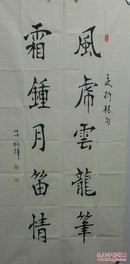 風虎雲龍筆
霜鍾月笛情